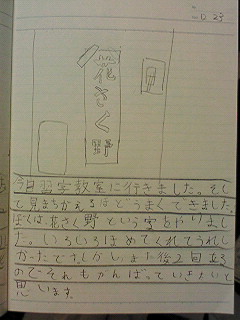 花さく野
今日習字教室に行きました。そし
て見まちがえるほどうまくできました。
ぼくは花さく野という字もやりまし
た。いろいろほめてくれてうれし
かったです。しかし、また後2回ある
のでそれもがんばっていきたいと
思います。